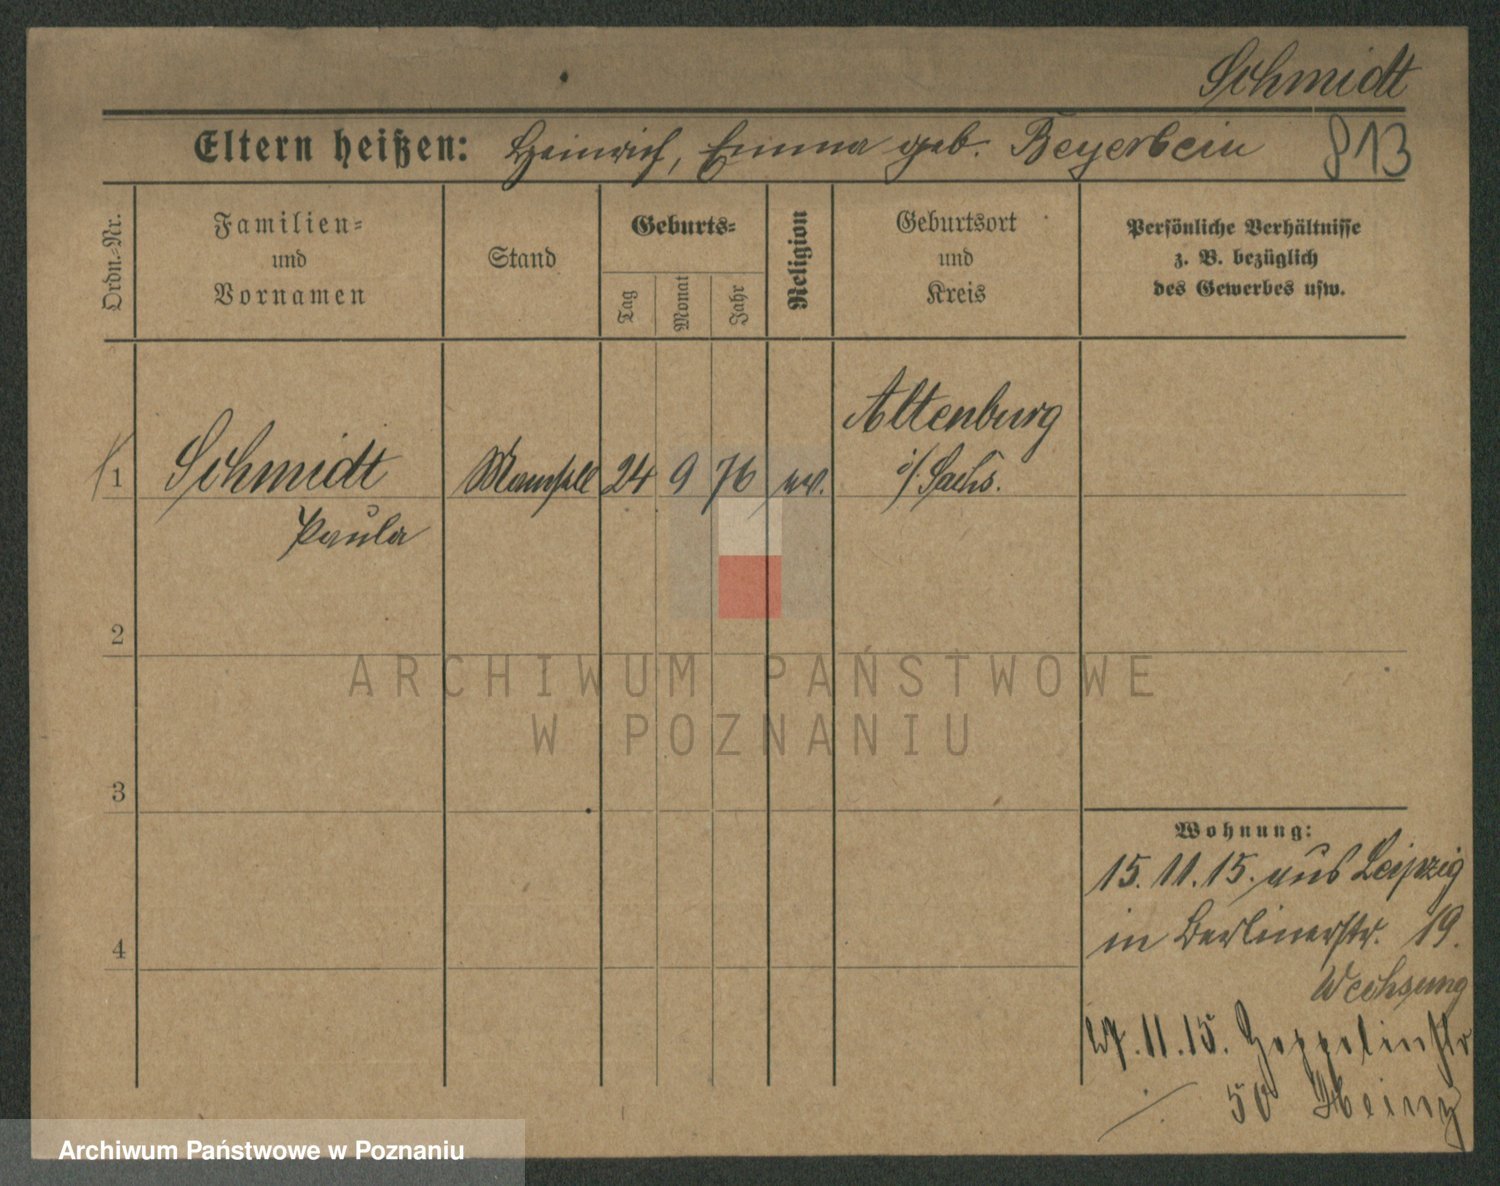 Schmidt
Eltern heißen: Heinrich, Emma geb. Beyerbein 813
Ordn.-Nr.
Familien-
und
Vornamen
Stand
Geburts-
Tag
Monat
Jahr
Religion
Geburtsort
und
Kreis
Persönliche Verhältnisse
z. B. bezüglich
des Gewerbes usw.
1 Schmidt Mamsell 24 9 76 ev. Altenburg
i/Sachs.
Paula
2
3
4
Wohnung:
15.11.15. aus Leipzig
in Berlinerstr. 19.
Wechsung
27.11.15. Zeppelinstr
50 Heinz
ARCHIWUM PAŃSTWOWE
W POZNANIU
Archiwum Państwowe w Poznaniu